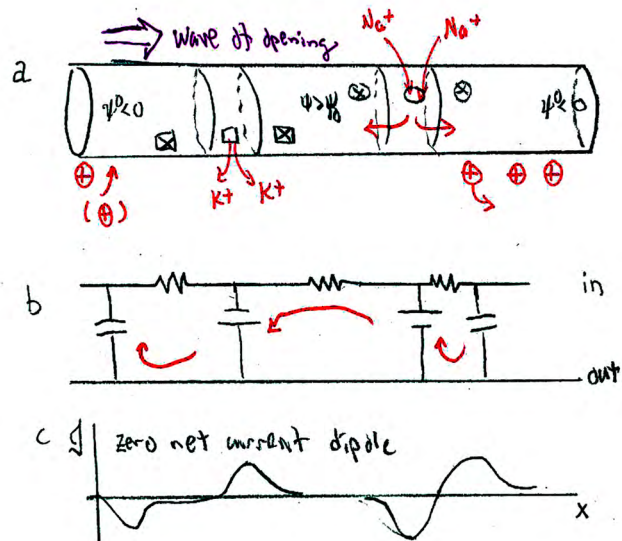 Na+ Na+
wave of opening
a
ψ⁰<0 ψ>ψ⁰ ψ⁰<0
(⊕) K+ K+
b in
out
c zero net current dipole
x